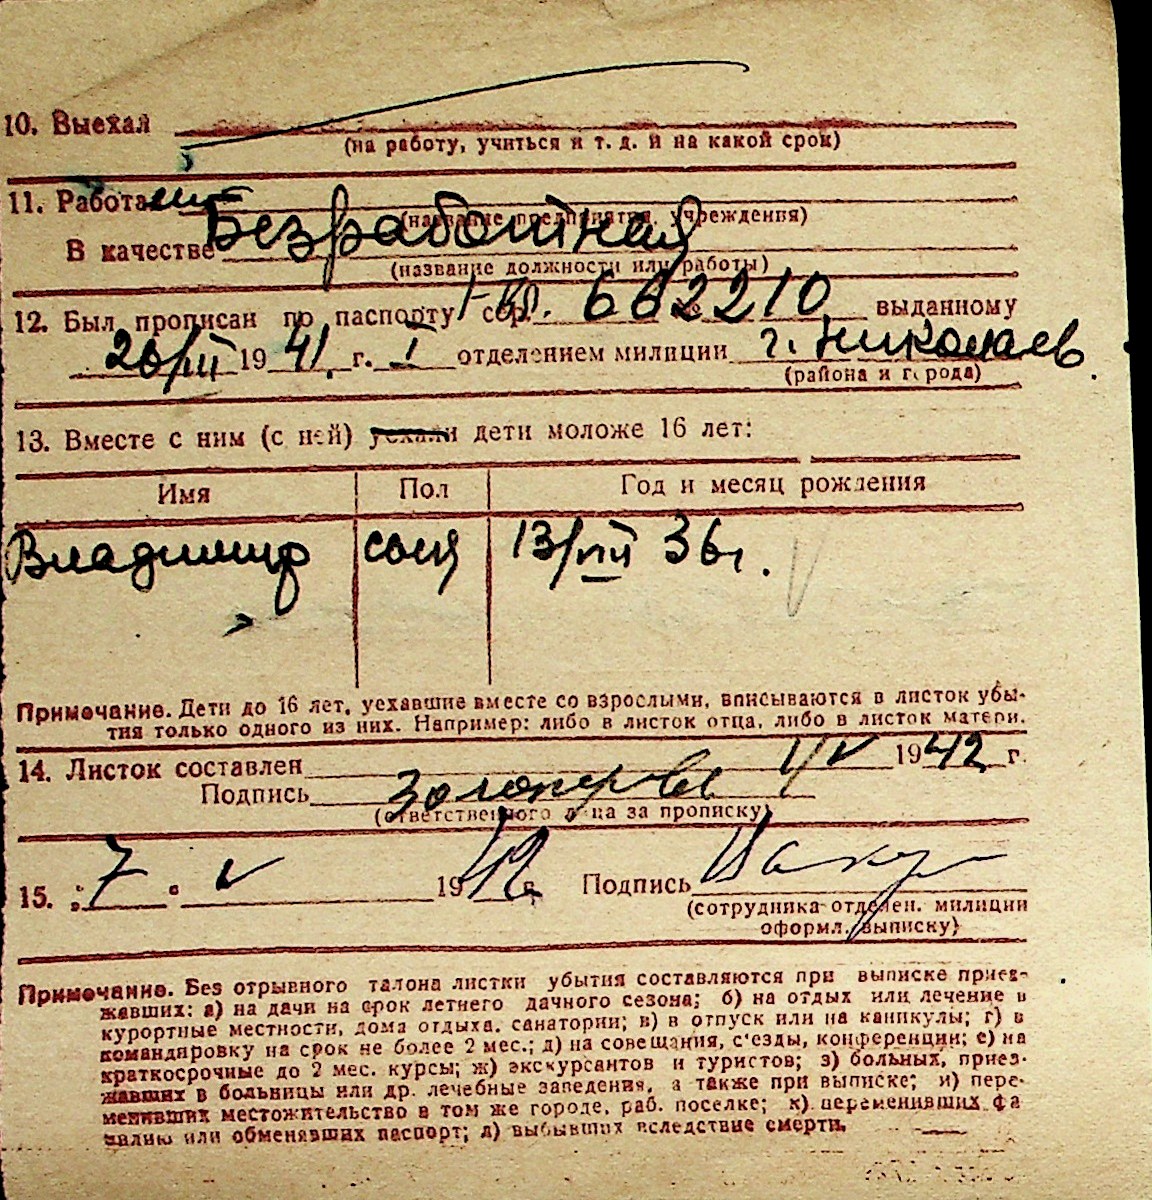 10. Выехал
(на работу, учиться и т. д. и на какой срок)
11. Работает
(название предприятия, учреждения)
В качестве Безработная
(название должности или работы)
12. Был прописан по паспорту сер. № 662210 выданному
26/III 1941 г. I отделением милиции г. Николаев
(района и города)
13. Вместе с ним (с ней) уехали дети моложе 16 лет:
Имя Пол Год и месяц рождения
Владимир сын 13/VII 36 г.
Примечание. Дети до 16 лет, уехавшие вместе со взрослыми, вписываются в листок убы-
тия только одного из них. Например: либо в листок отца, либо в листок матери.
14. Листок составлен 1/V 1942 г.
Подпись
(ответственного лица за прописку)
15. 7 V 1942 Подпись
(сотрудника отделен. милиции
оформл. выписку)
Примечание. Без отрывного талона листки убытия составляются при выписке приез-
жавших: а) на дачи на срок летнего дачного сезона; б) на отдых или лечение в
курортные местности, дома отдыха, санатории; в) в отпуск или на каникулы; г) в
командировку на срок не более 2 мес.; д) на совещания, с'езды, конференции; е) на
краткосрочные до 2 мес. курсы; ж) экскурсантов и туристов; з) больных, приез-
жавших в больницы или др. лечебные заведения, а также при выписке; и) пере-
менивших местожительство в том же городе, раб. поселке; к) переменивших фа
милию или обменявших паспорт; л) выбывших вследствие смерти.